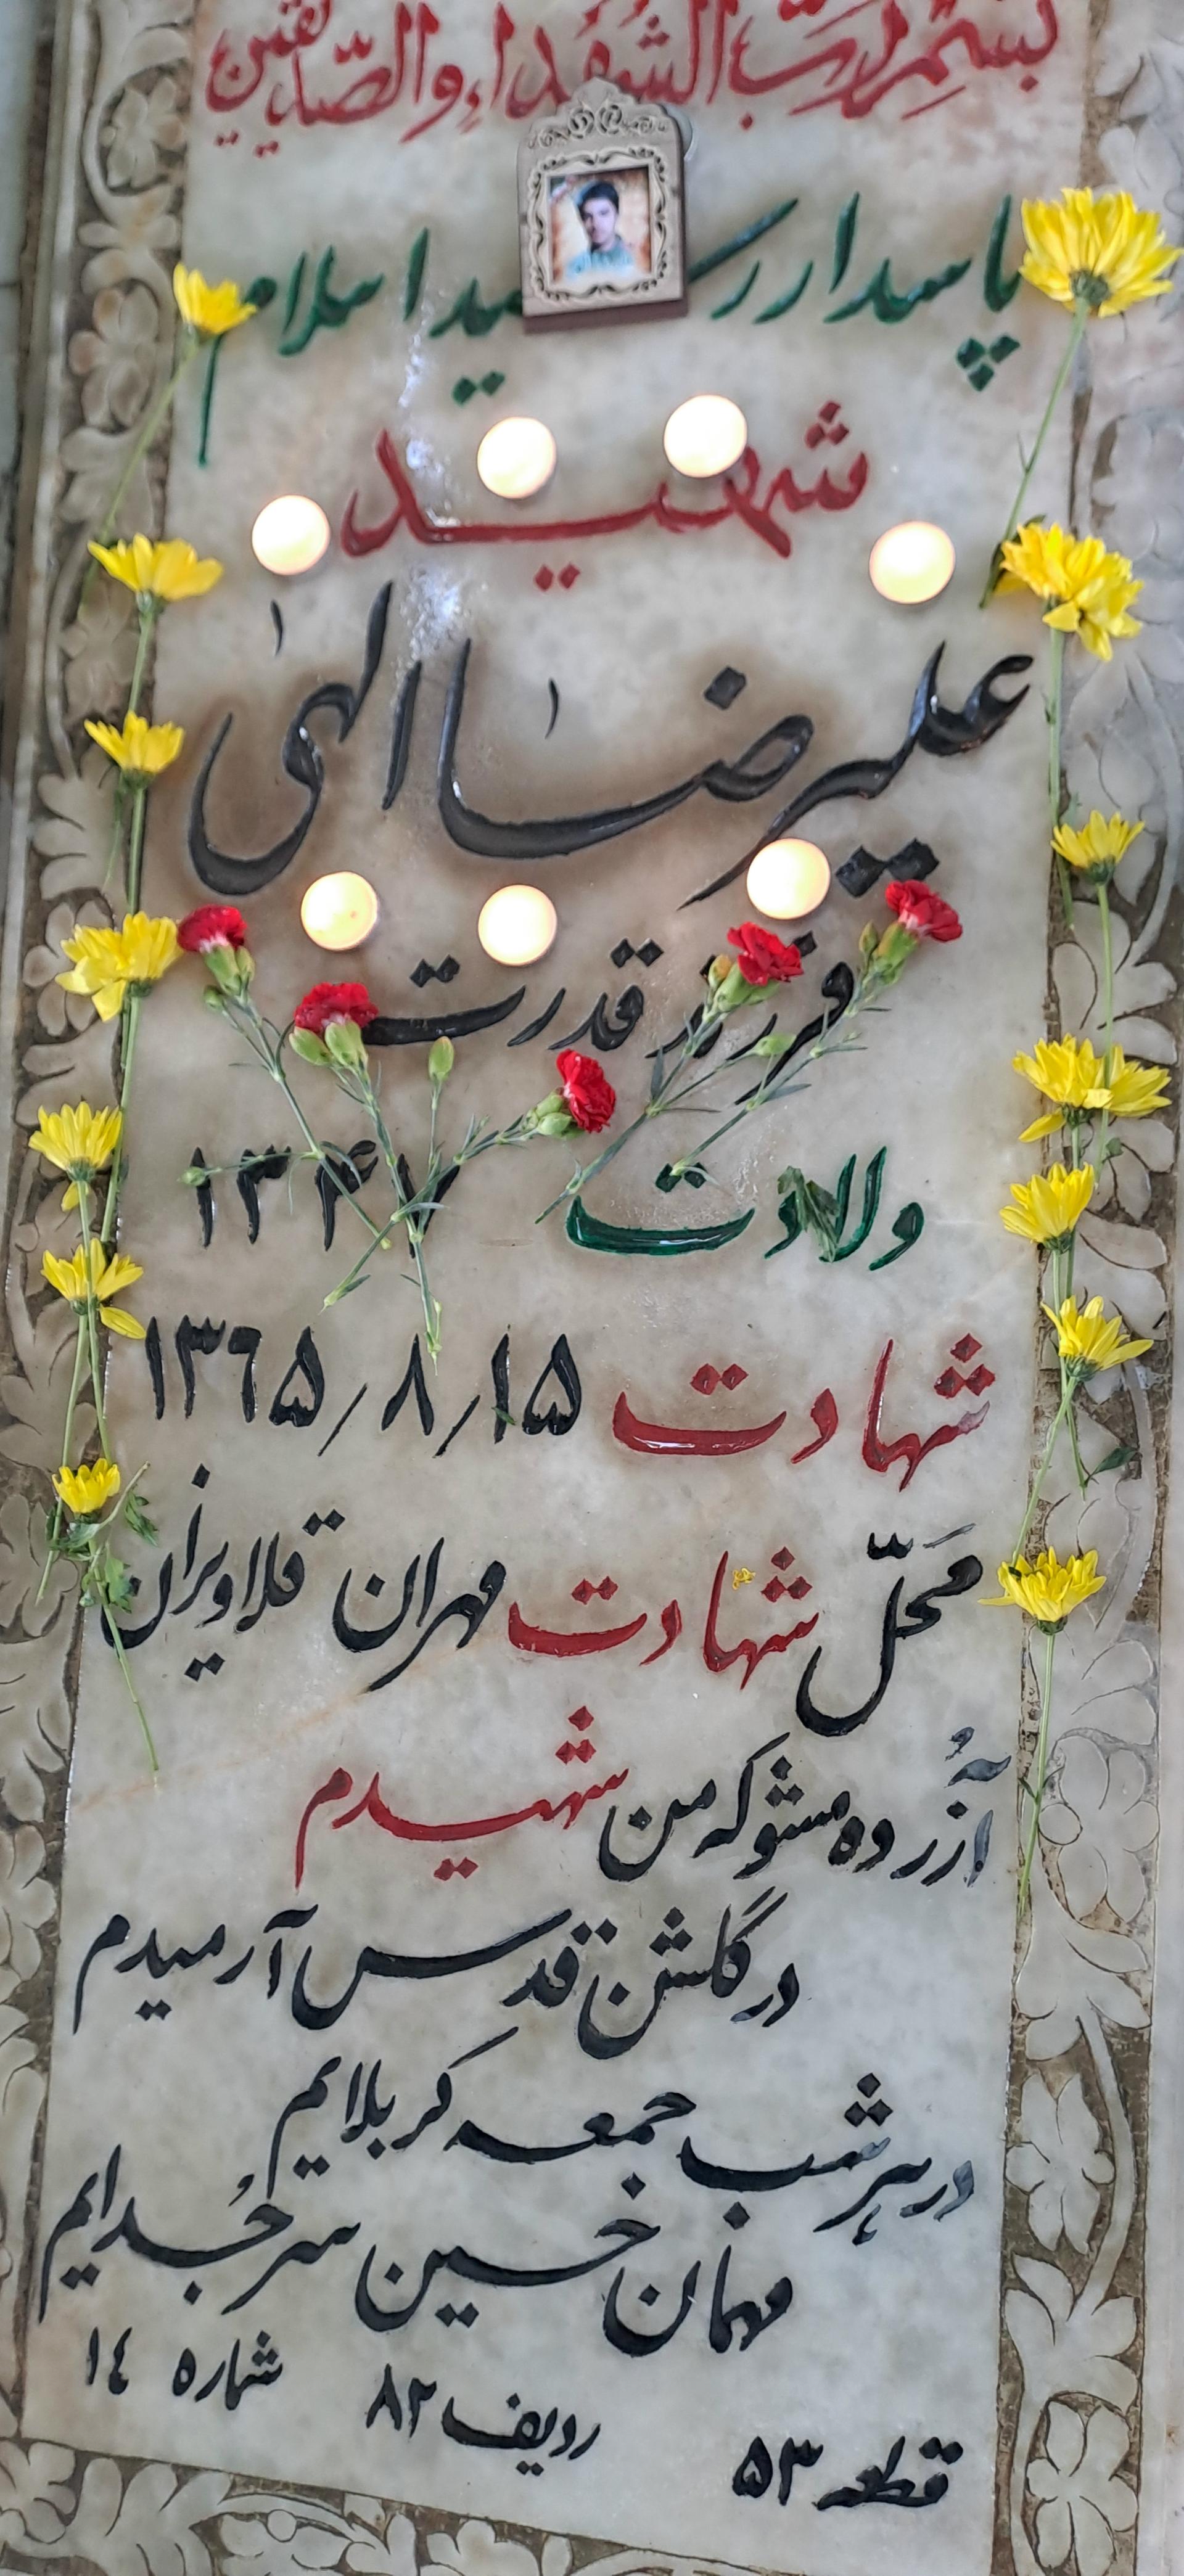 بسم رب الشهداء والصدیقین
پاسدار اسلام
شهید
علیرضا الهی
فرزند قدرت
ولادت ۱۳۴۷
شهادت ۱۵/۸/۱۳۶۵
محلّ شهادت مهران قلاویزان
آزُرده مشو که من شهیدم
در گلشن قدس آرمیدم
در هر شب جمعه کربلایم
مهمان حسین سر جُدایم
قطعه ۵۳ ردیف ۸۲ شماره ۱٤